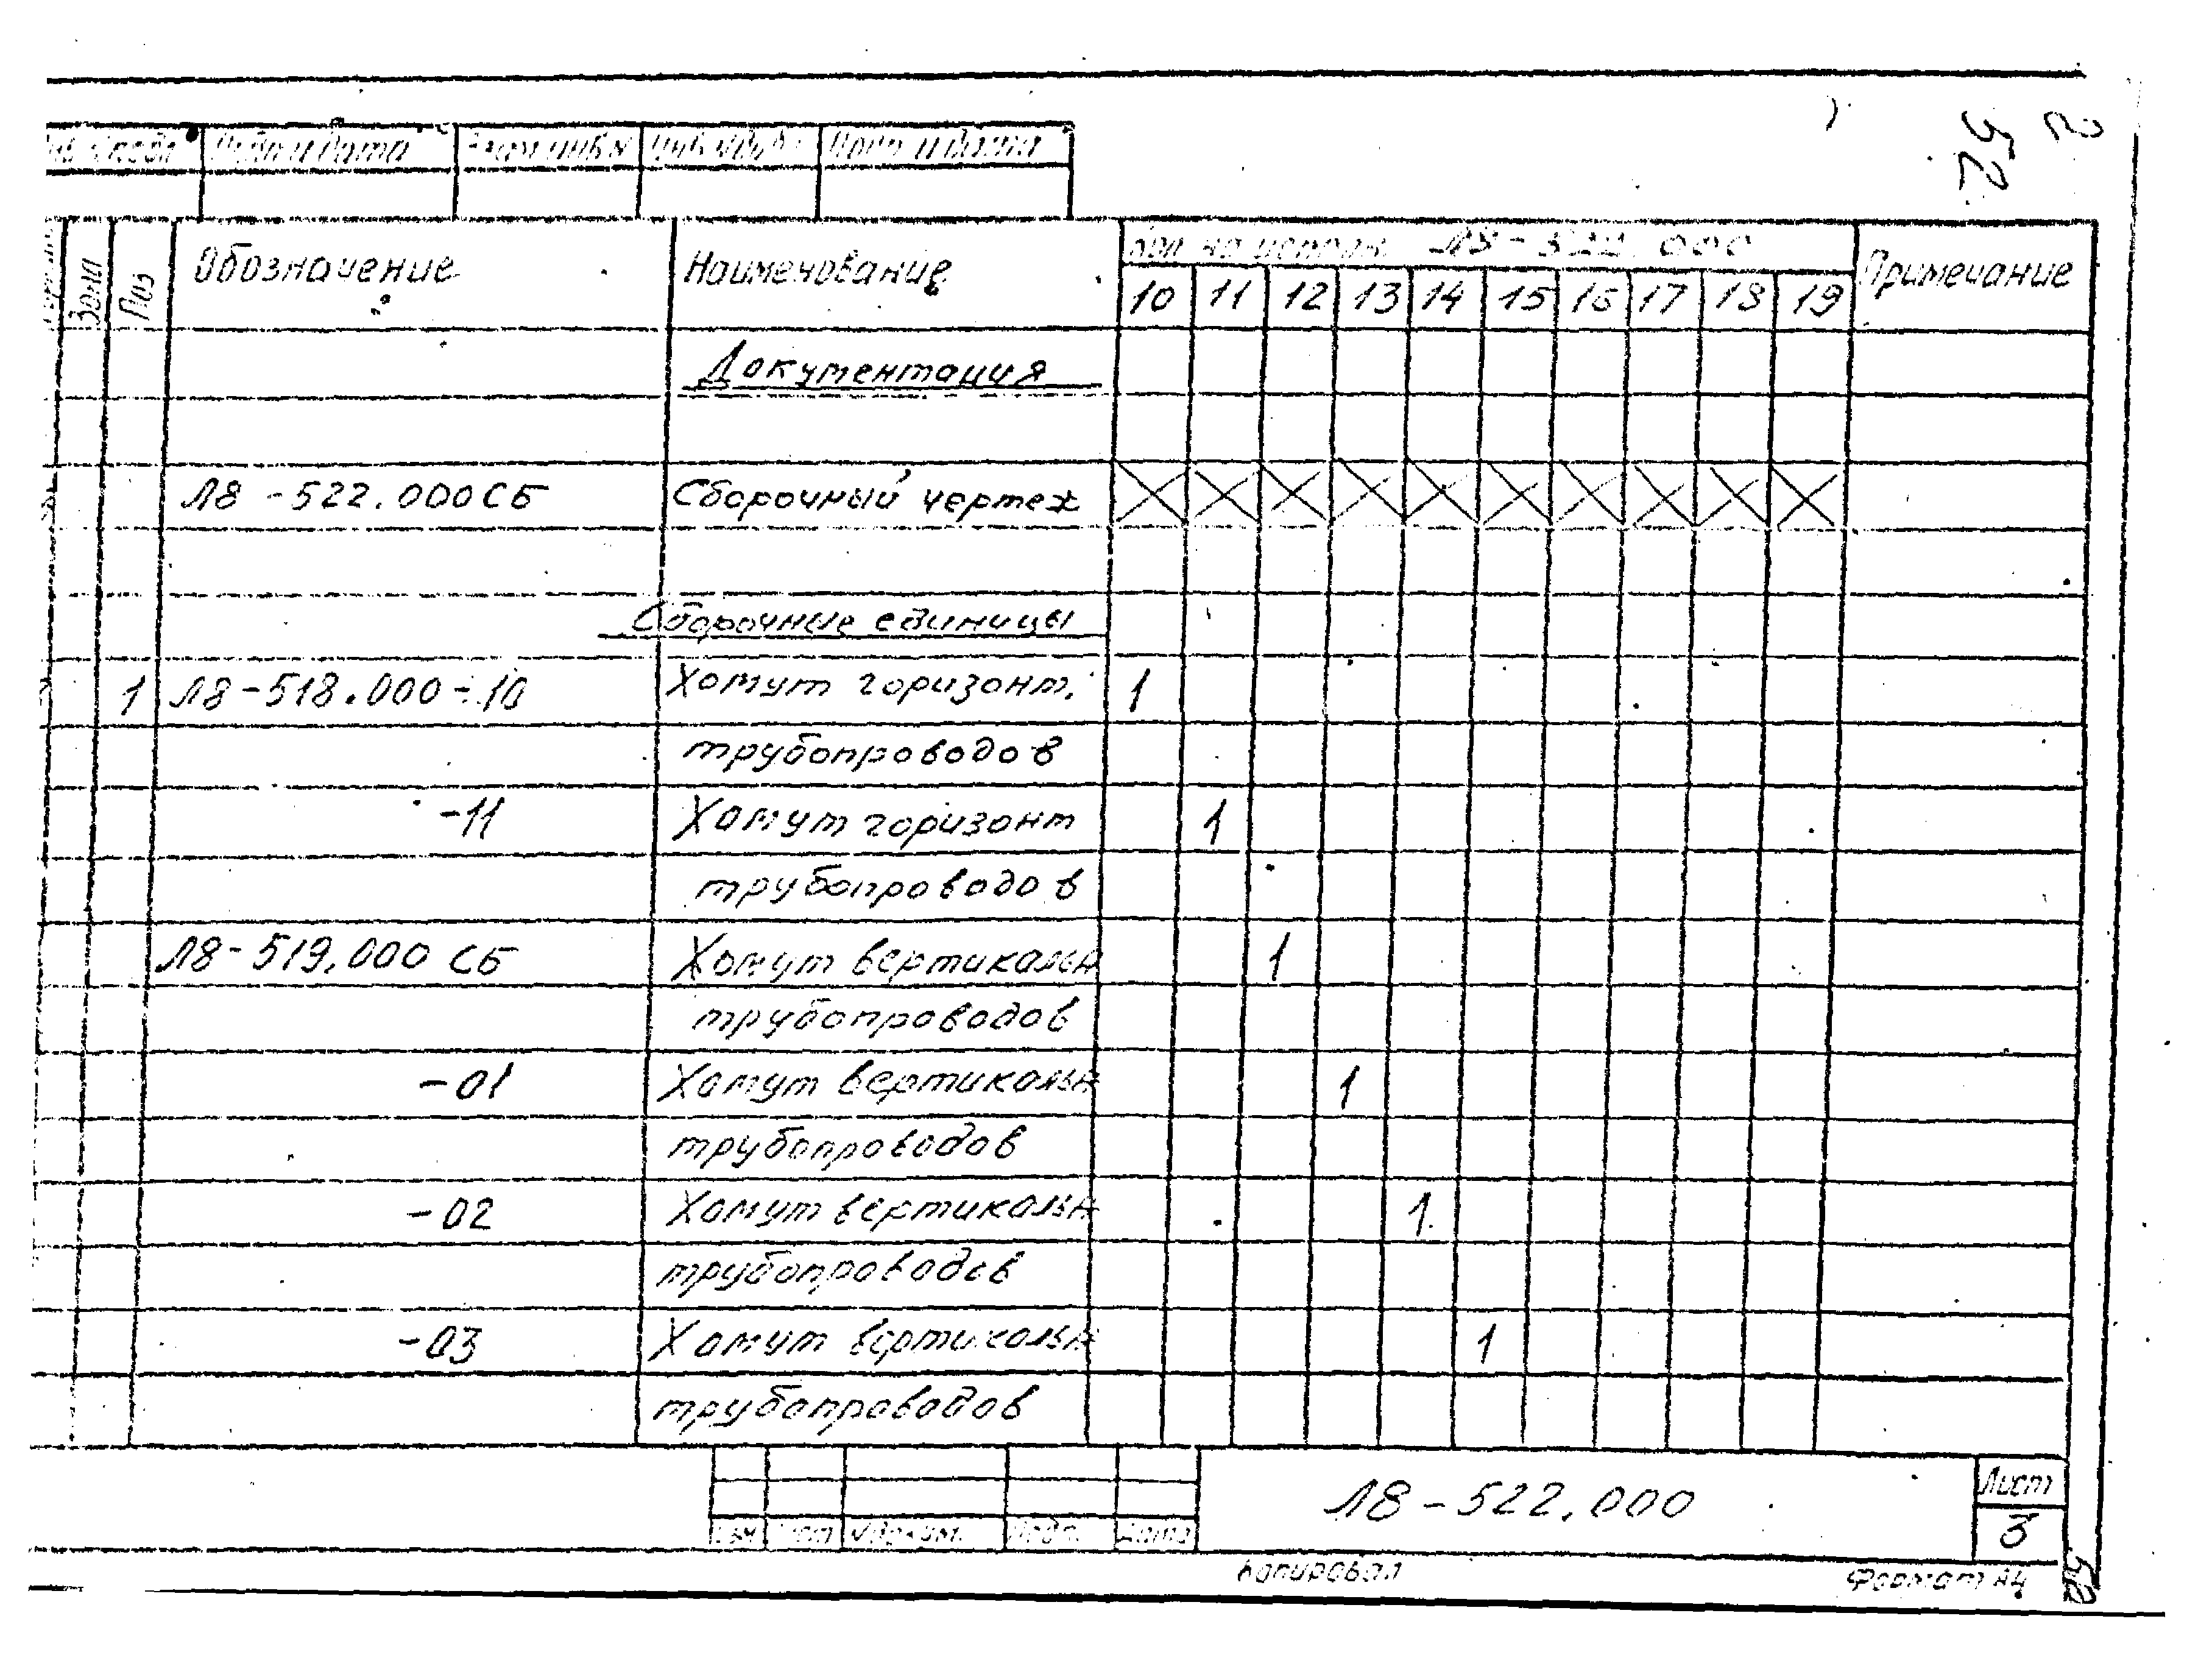 Подп и дата Взам инв № Подп и дата
52
Зона Поз Обозначение Наименование Кол на исполн Л8-522.000 Примечание
10 11 12 13 14 15 16 17 18 19
Документация
Л8-522.000СБ Сборочный чертеж
Сборочные единицы
1 Л8-518.000-10 Хомут горизонт. 1
трубопроводов
-11 Хомут горизонт 1
трубопроводов
Л8-519.000 СБ Хомут вертикальн 1
трубопроводов
-01 Хомут вертикальн 1
трубопроводов
-02 Хомут вертикальн 1
трубопроводов
-03 Хомут вертикальн 1
трубопроводов
Изм Лист № докум. Подп. Дата Л8-522.000 Лист
3
Копировал Формат А4
52